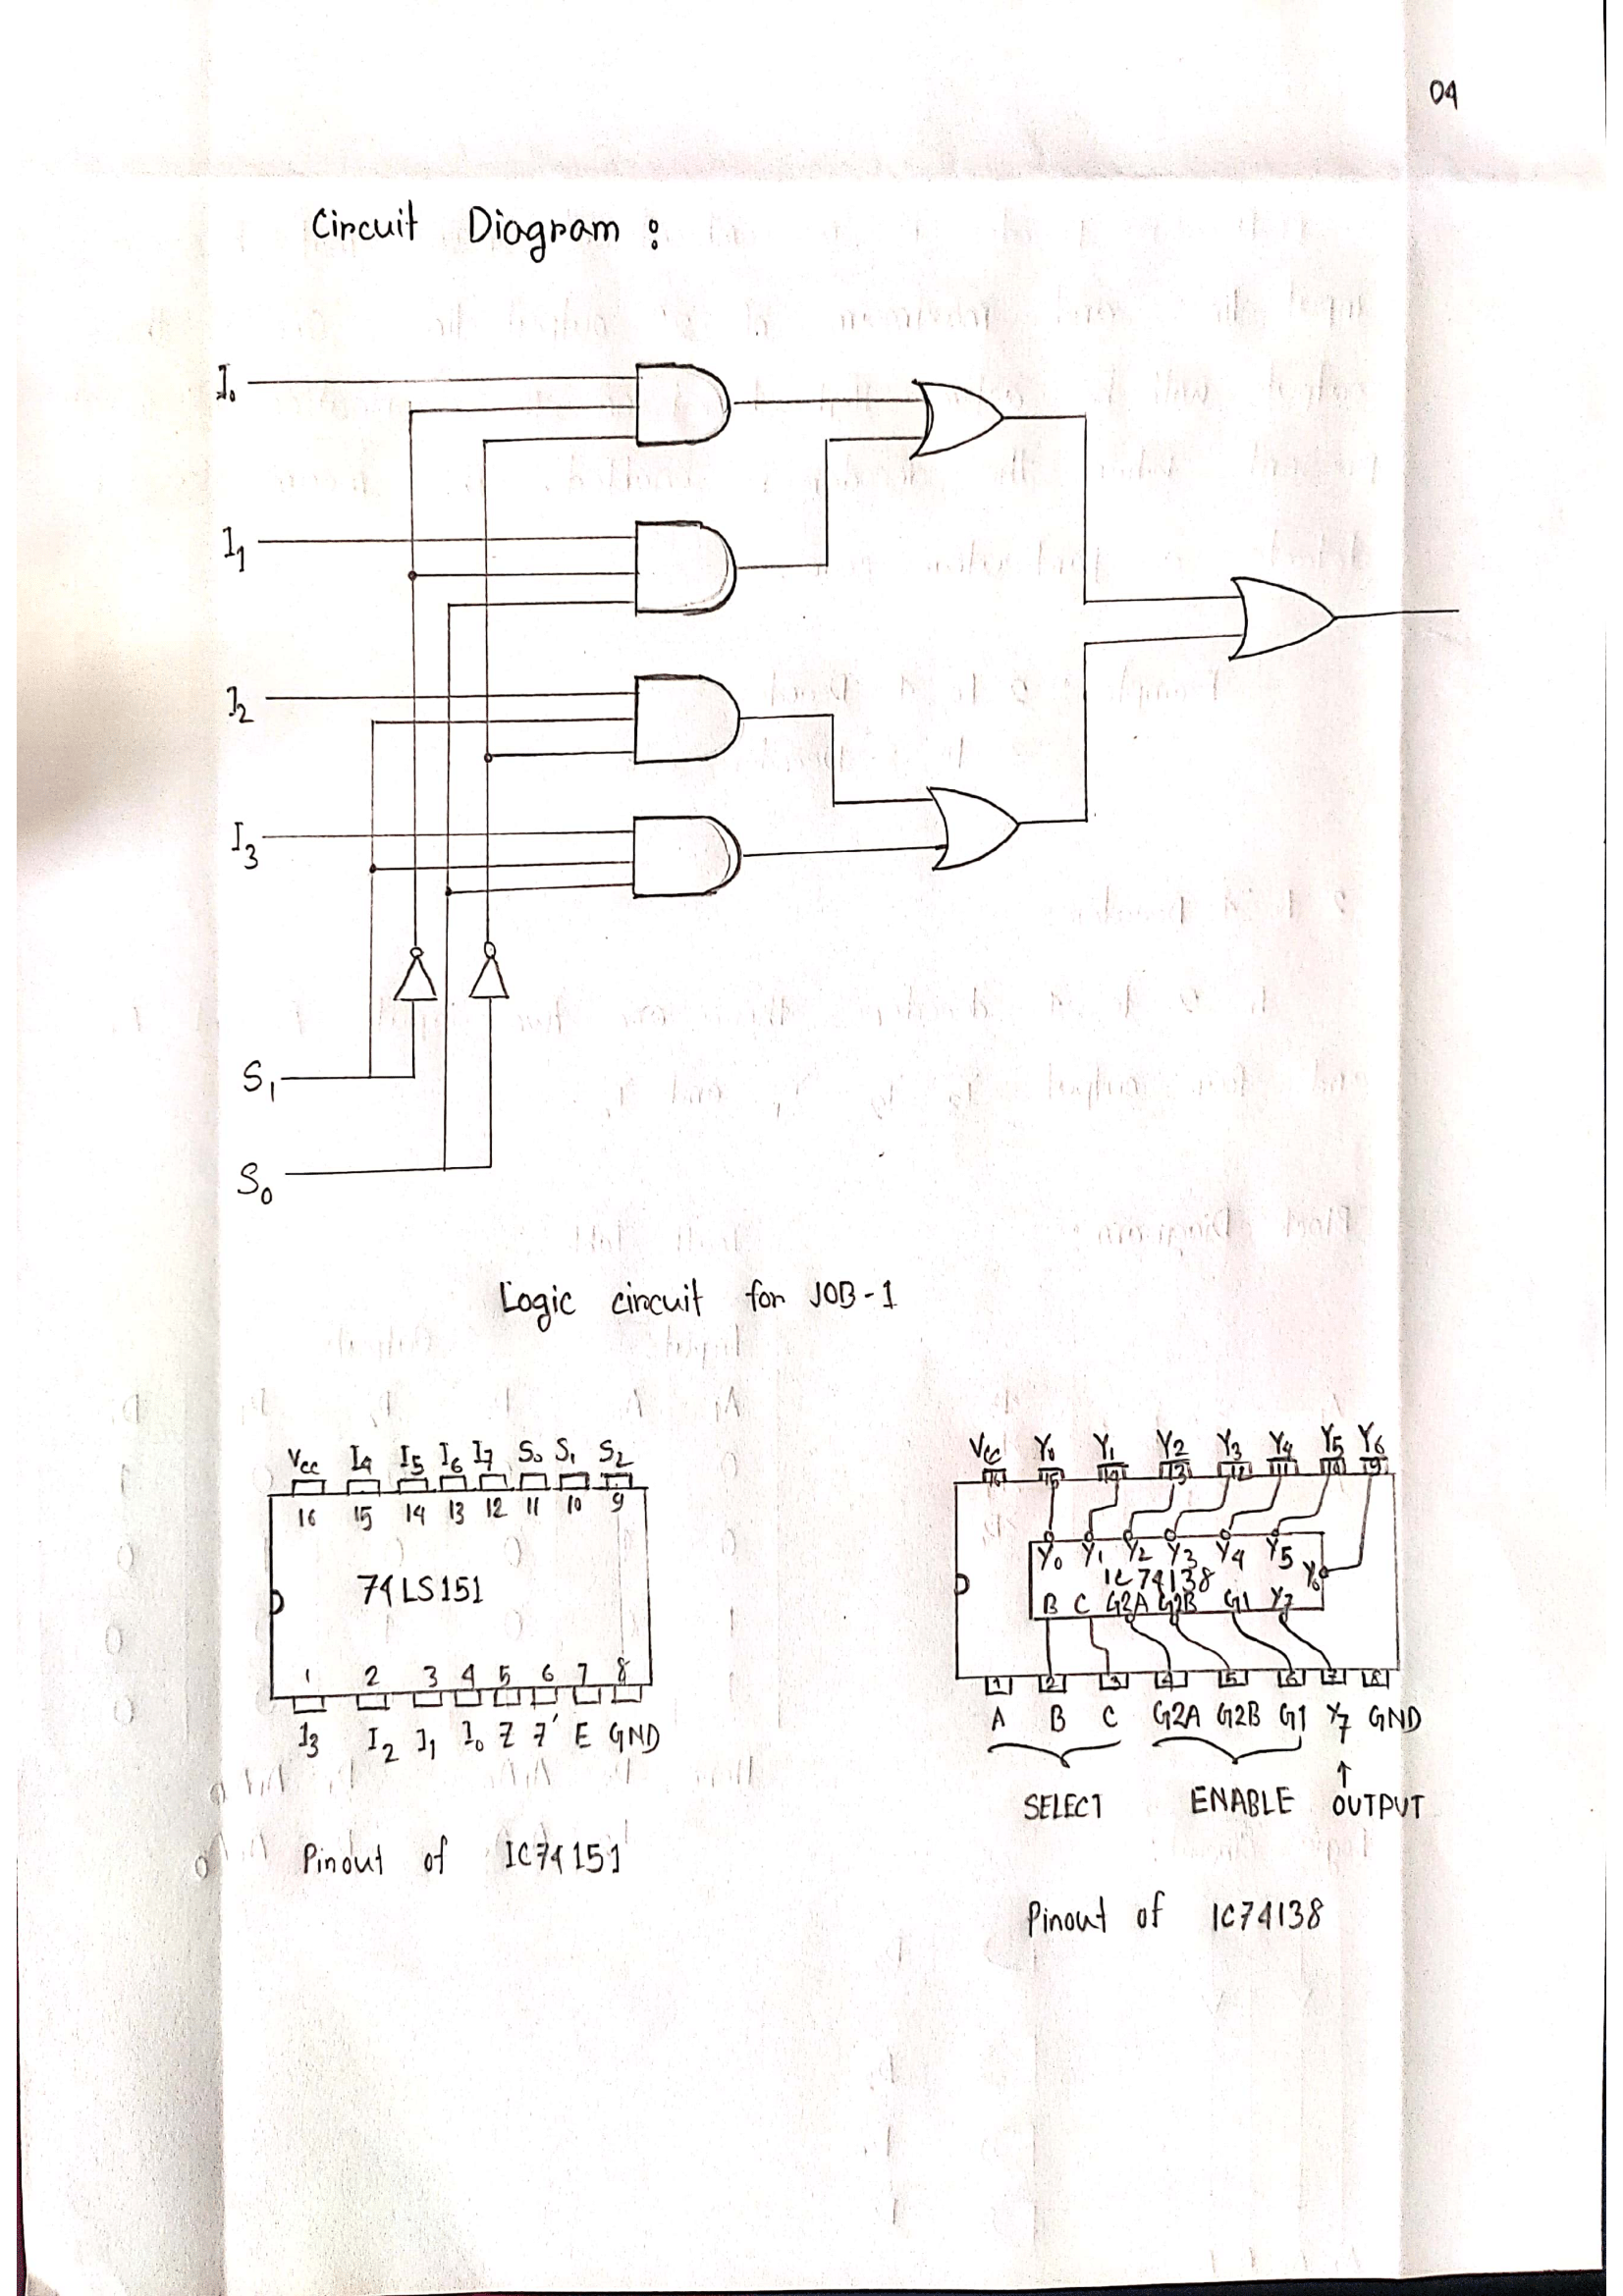 04
Circuit Diagram :
I₀
I₁
I₂
I₃
S₁
S₀
Logic circuit for JOB-1
Vcc I4 I5 I6 I7 S0 S1 S2
16 15 14 13 12 11 10 9
74LS151
1 2 3 4 5 6 7 8
I3 I2 I1 I0 Z Z' E GND
Pinout of IC74151
Vcc Y0 Y1 Y2 Y3 Y4 Y5 Y6
16 15 14 13 12 11 10 9
Y0 Y1 Y2 Y3 Y4 Y5
IC 74138
B C G2A G2B G1 Y7
1 2 3 4 5 6 7 8
A B C G2A G2B G1 Y7 GND
SELECT ENABLE OUTPUT
Pinout of IC74138